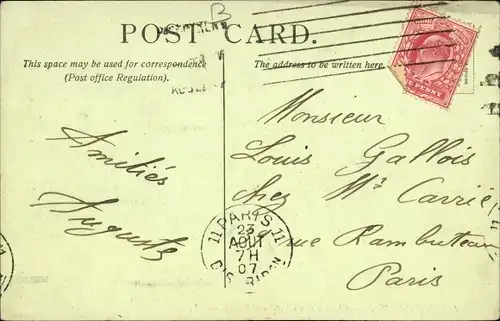 POST CARD.
This space may be used for correspondence
(Post office Regulation).
The address to be written here.
PENNY
Amitiés
Auguste
Monsieur
Louis Gallois
chez Mr Carrié
rue Rambuteau
Paris
11 PARIS 11
23
AOUT
7H
07